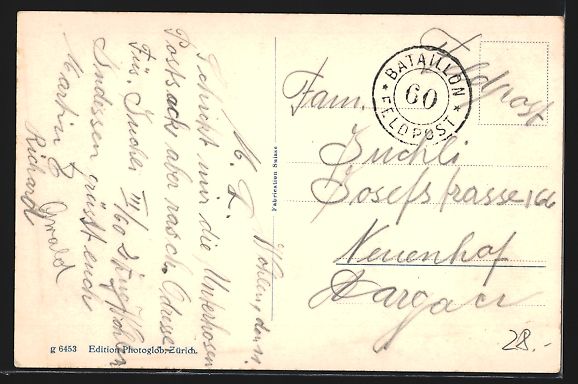 Feldpost
* BATAILLON *
60
FELDPOST
Fam.
Zuchli
Josefstrasse
Neuenhof
Aargau
28.-
M. L.
Schickt mir die Unterhosen
Postsack aber rasch. Adresse
Füs. III/60
Indessen grüsst euch
Martin
Oswald
Richard
Fabrication Suisse
g 6453 Edition Photoglob, Zürich.